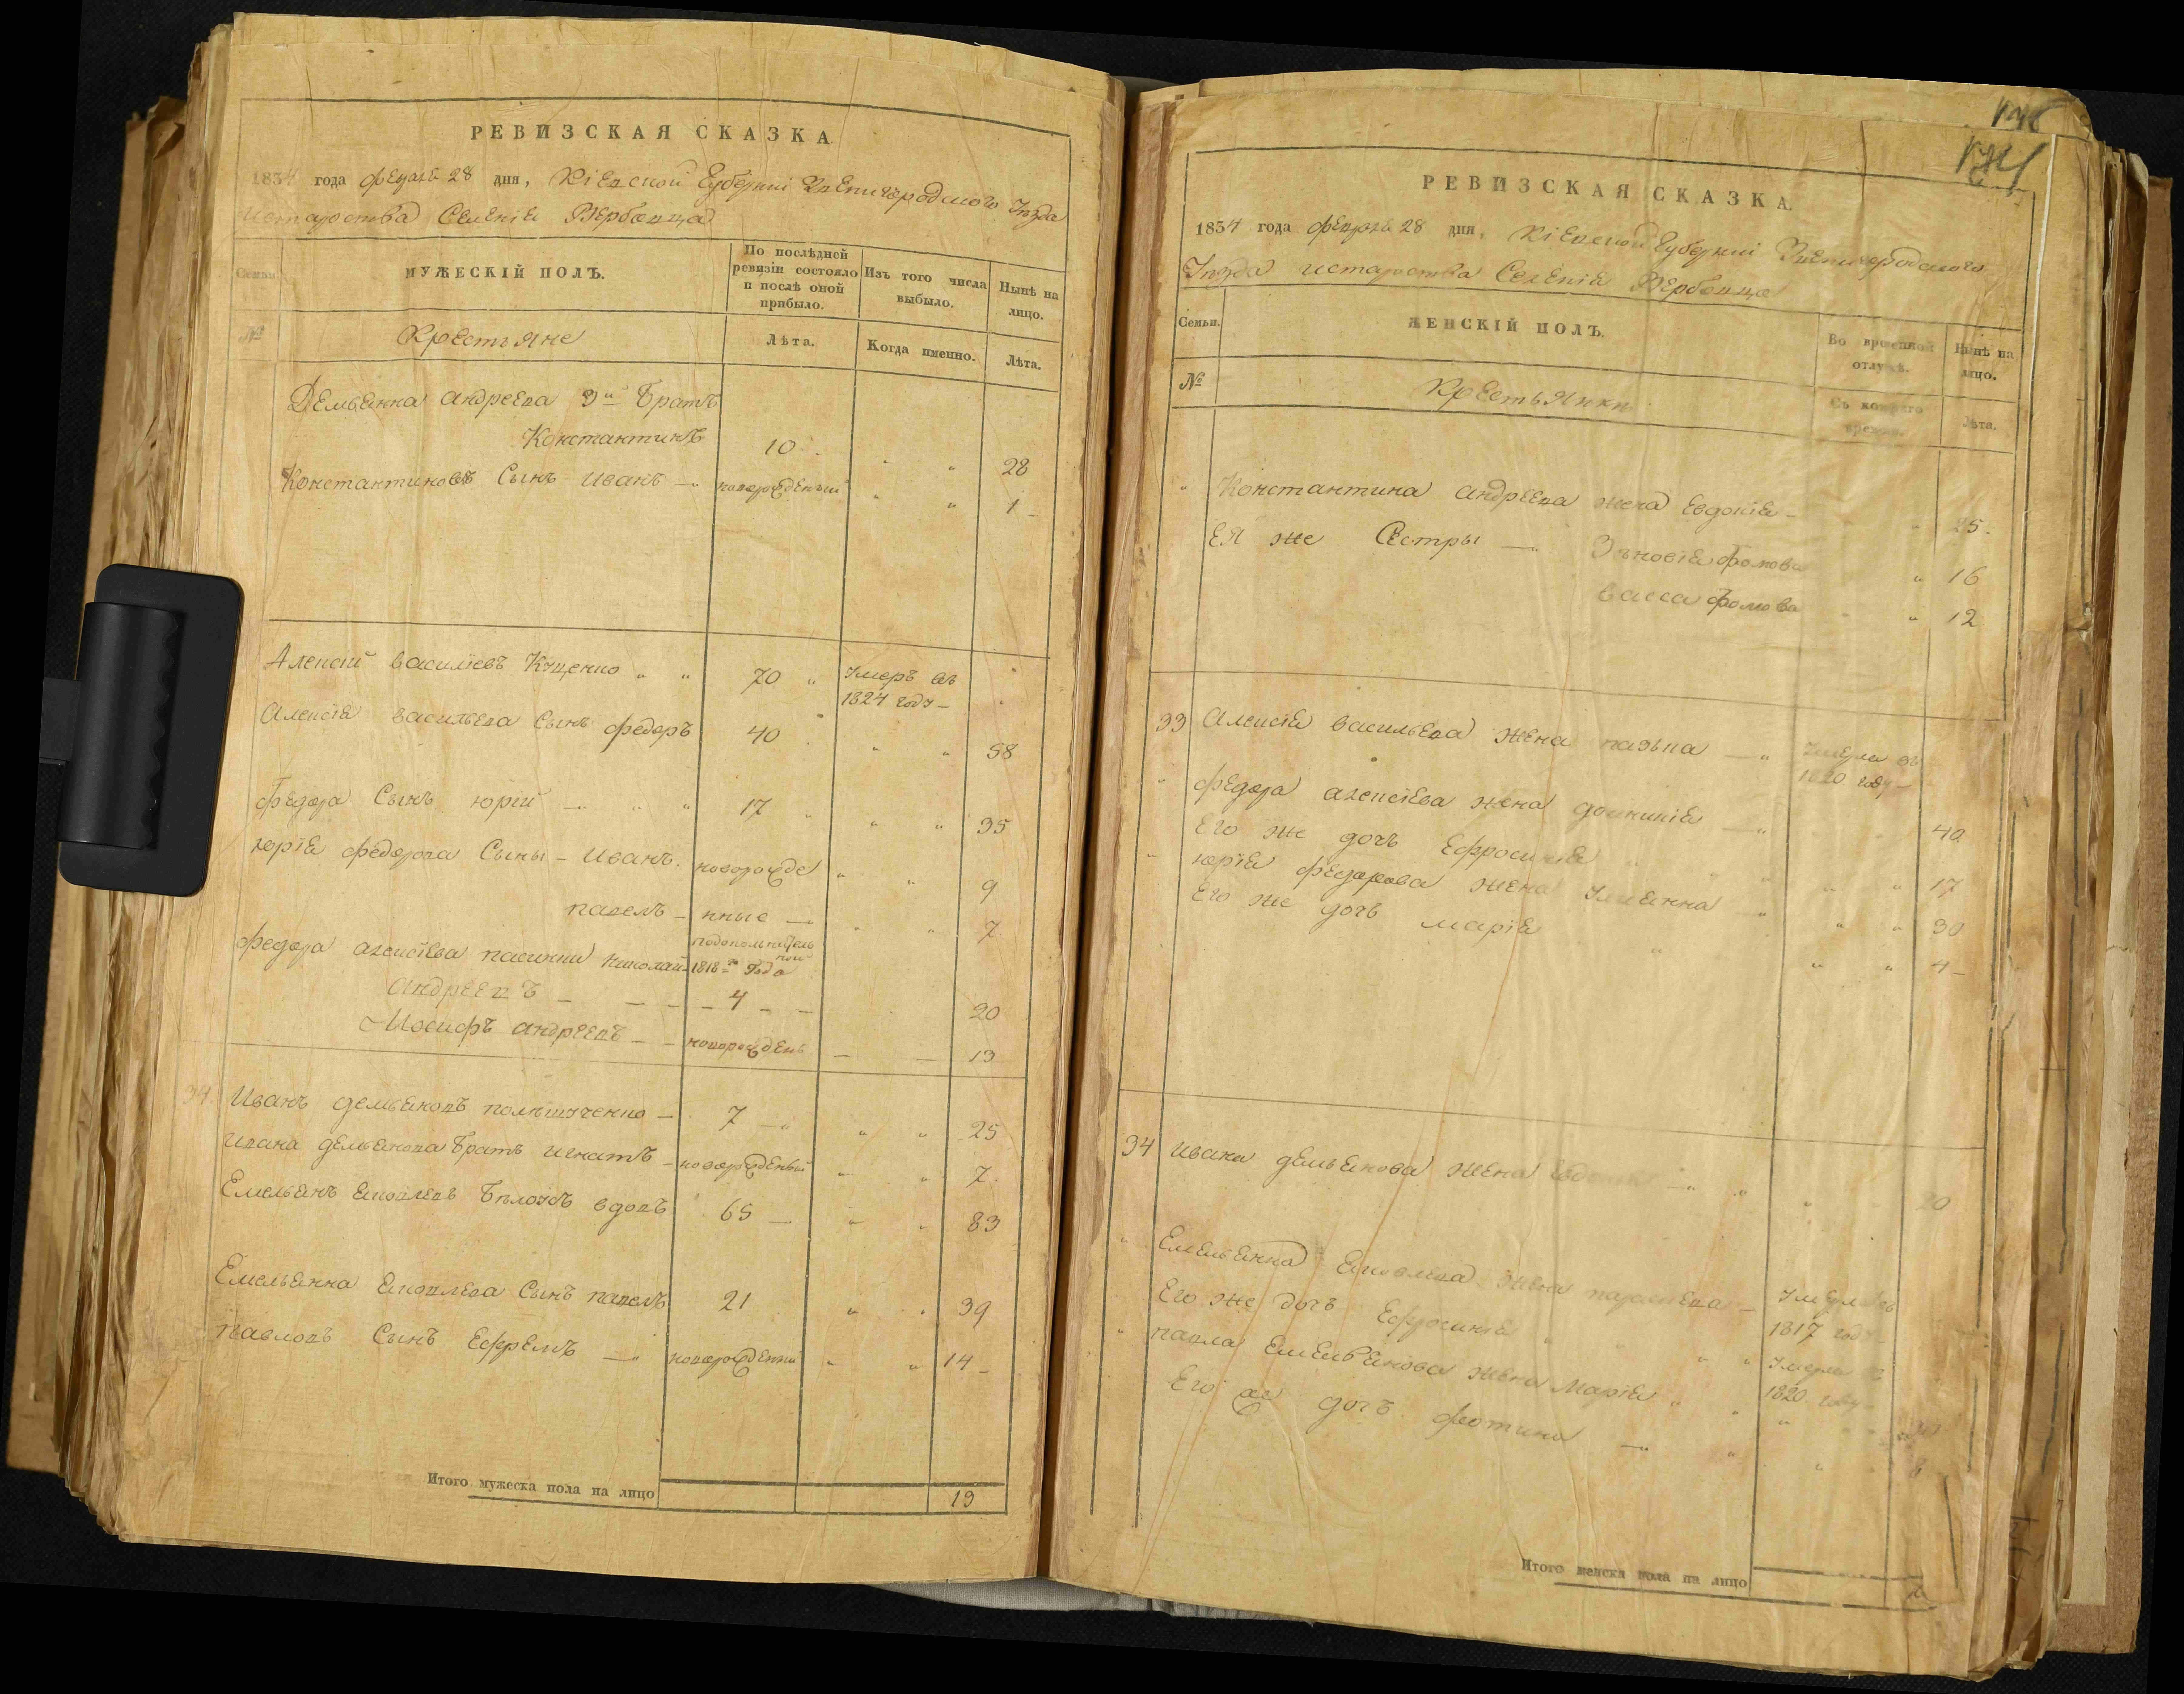 РЕВИЗСКАЯ СКАЗКА.
1834 года февраля 28 дня, Кіевской Губерніи Звенигородского Уезда
и староства Селеніе Вербовца
Семьи.
МУЖЕСКІЙ ПОЛЪ.
По послѣдней ревизіи состояло и послѣ оной прибыло.
Изъ того числа выбыло.
Нынѣ на лицо.
№
Крестьяне
Лѣта.
Когда именно.
Лѣта.
Демьянна андреева 3й Братъ
Константинъ 10 28
Константиновъ Сынъ иванъ новорожденный 1
Алексій василіевъ Куценко 70 Умеръ въ
1824 году
Алексія васильева Сынъ федоръ 40 58
федора Сынъ юрій 17 35
юрія федорова Сыны - иванъ новорожде 9
павелъ - нные 7
федора алексіева пасинки николай 1818го Года
андреевъ 4 20
Иосифъ андреевъ новорожденъ 13
34 Иванъ демьяновъ 7 25
ивана демьянова Братъ игнатъ новорожденый 7
Емельянъ яковлевъ Бѣлоусъ вдовъ 65 83
Емельянна яковлева Сынъ павелъ 21 39
павловъ Сынъ Ефремъ новорожденный 14
Итого мужеска пола на лицо 19
174
РЕВИЗСКАЯ СКАЗКА.
1834 года февраля 28 дня, Кіевской Губерніи Звенигородского
Уезда и староства Селенія Вербовца
Семьи.
ЖЕНСКІЙ ПОЛЪ.
Во временной отлучкѣ.
Нынѣ на лицо.
№
Крестьянки
Съ котораго времени.
Лѣта.
Константина андреева жена Евдокія 25.
Ея же Сестры Зѣновія фомова 16
васса фомова 12
33 Алексія васильева жена Умерла въ
1820 году
федора алексіева жена 40
Его же дочь Ефросинія 17
юрія федорова жена Ульянна 30
Его же дочь марія 4
34 ивана демьянова жена 20
Емельянна яковлева жена Умерла въ
1817 году
Его же дочь Ефросинія Умерла въ
1820 году
павла Емельянова жена марія
Его же дочь фотина
Итого женска пола на лицо